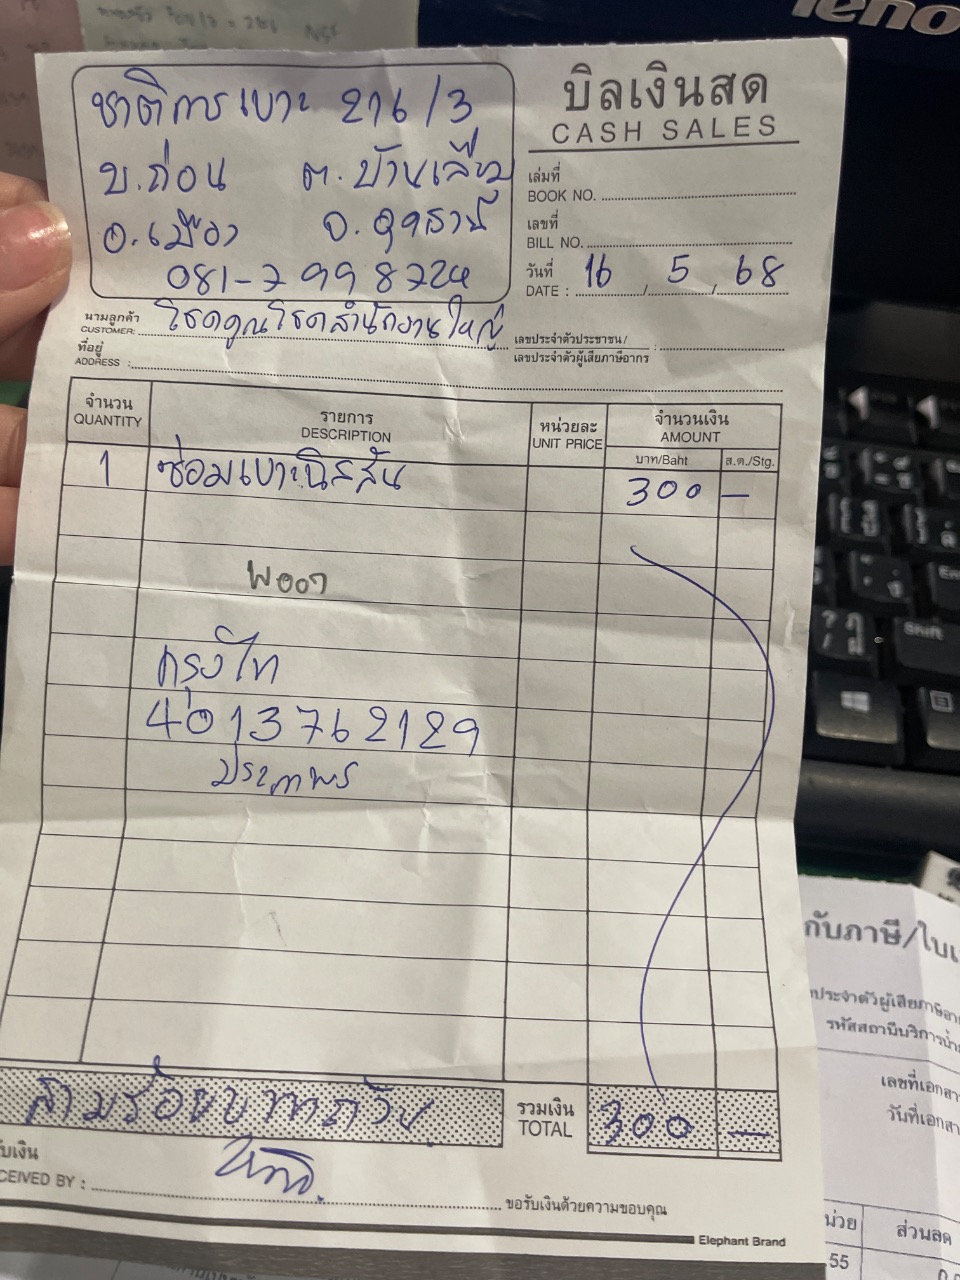 ชาติการเบาะ 216/3
บ.ถ่อน ต.บ้านเลื่อม
อ.เมือง จ.อุดรธานี
081-7998724
บิลเงินสด
CASH SALES
เล่มที่
BOOK NO.
เลขที่
BILL NO.
วันที่ 16 / 5 / 68
DATE :
นามลูกค้า โชคคูณโชคสำนักงานใหญ่
CUSTOMER:
เลขประจำตัวประชาชน/
เลขประจำตัวผู้เสียภาษีอากร
ที่อยู่
ADDRESS :
จำนวน รายการ หน่วยละ จำนวนเงิน
QUANTITY DESCRIPTION UNIT PRICE AMOUNT
บาท/Baht ส.ต./Stg.
1 ซ่อมเบาะนิสสัน 300 —
กรุงไท
4013762129
ประภาพร
สามร้อยบาทถ้วน
รวมเงิน 300 —
TOTAL
รับเงิน
CEIVED BY :
ขอรับเงินด้วยความขอบคุณ
Elephant Brand
กับภาษี/ใบ
ประจำตัวผู้เสียภาษีอา
รหัสสถานีบริการน้ำ
เลขที่เอกสา
วันที่เอกสา
น่วย ส่วนลด
.55
Shift
leno